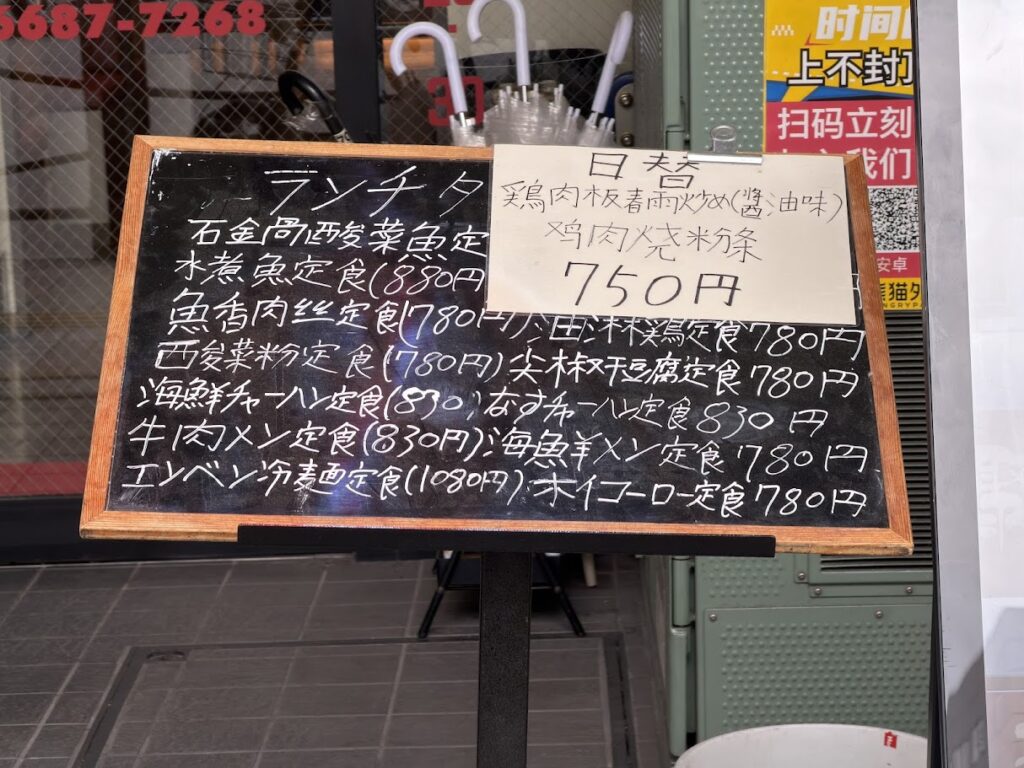 6687-7268
时间
上不封顶
扫码立刻
我们
安卓
熊猫外
ランチタ
日替
鶏肉板春雨炒め(醬油味)
鸡肉烧粉条
750円
石金咼酸菜魚定
水煮魚定食(880円
魚香肉丝定食(780円)油淋鶏定食780円
酸菜粉定食(780円)尖椒干豆腐定食780円
海鮮チャーハン定食(830)なすチャーハン定食830円
牛肉メン定食(830円)海鮮メン定食780円
エンベン冷麺定食(1080円)ホイコーロー定食780円